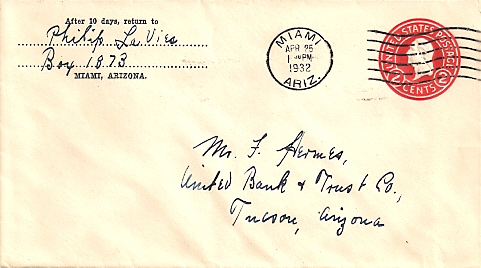 After 10 days, return to
Philip La Vies
Box 1873
MIAMI, ARIZONA.
MIAMI
APR 25
1 PM
1932
ARIZ.
UNITED STATES POSTAGE
2 CENTS 2
Mr. F. Hermes,
United Bank & Trust Co.,
Tucson, Arizona